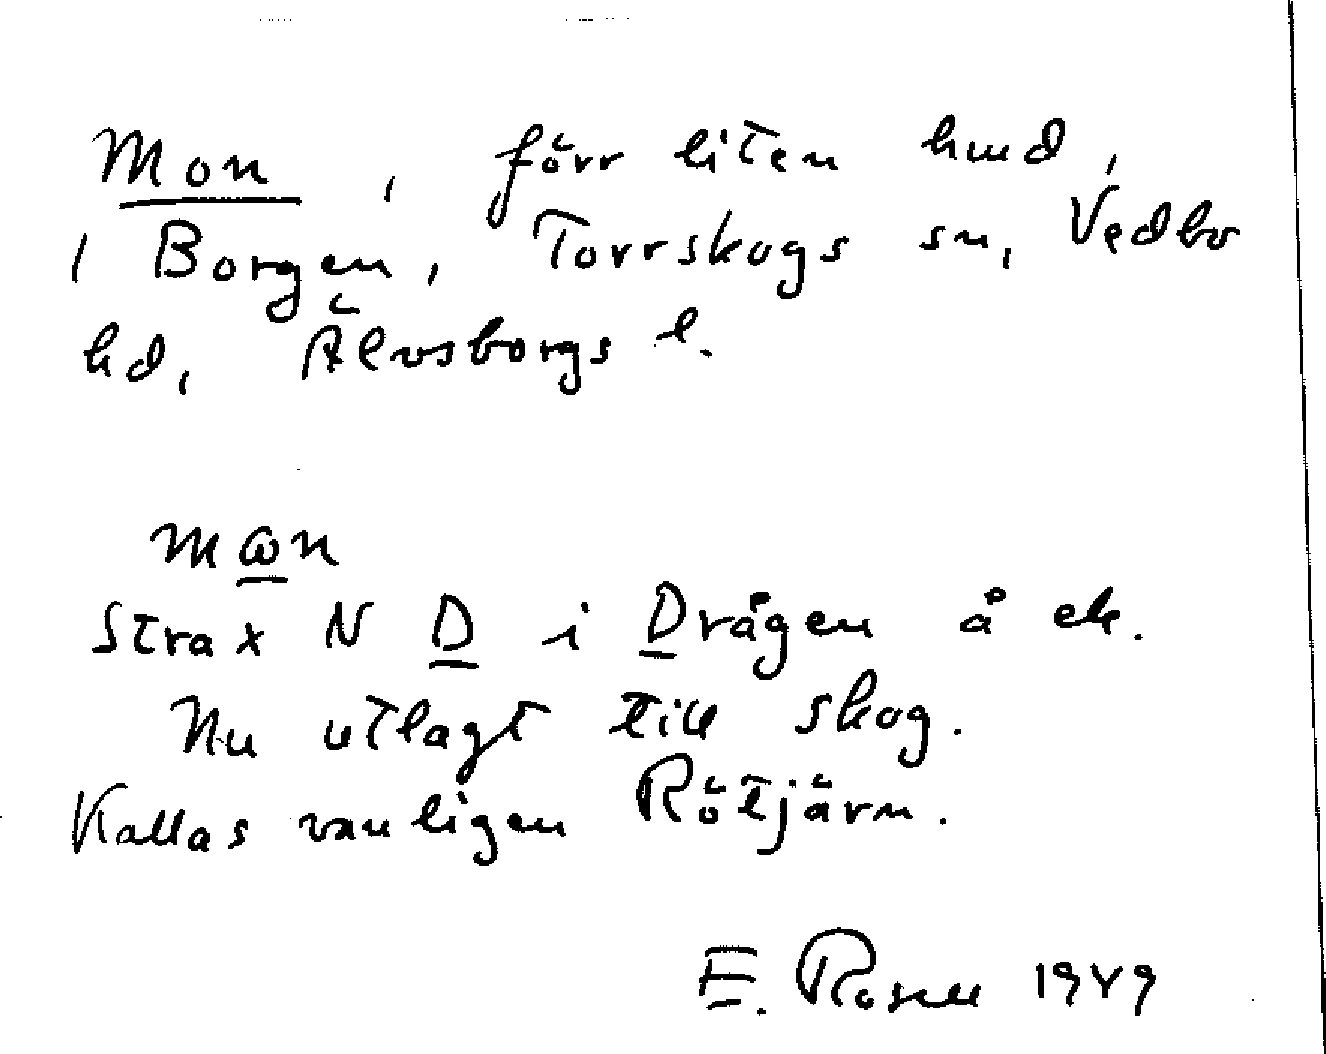 Mon, förr liten hmd,
i Borgen, Torrskogs sn, Vedbo
hd, Älvsborgs l.
mωn
Strax N D i Drågen å ek.
Nu utlagt till skog.
Kallas vanligen Rötjärn.
E. Rosell 1949